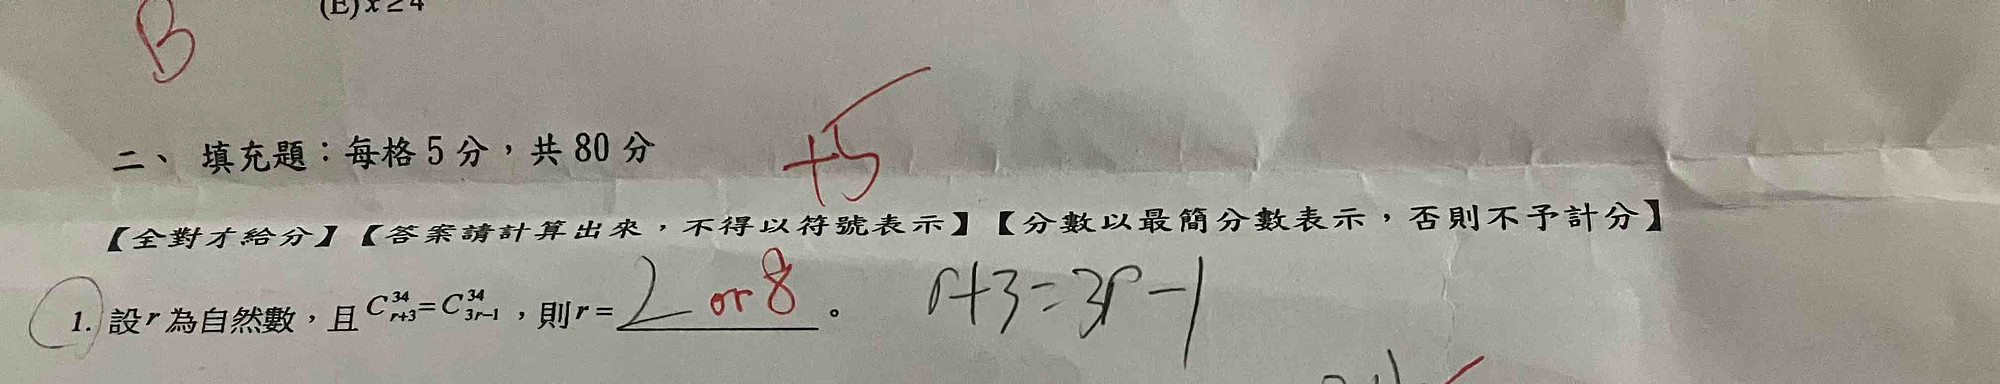 (E) x ≥ 4
B
+5
二、 填充題：每格 5 分，共 80 分
【全對才給分】【答案請計算出來，不得以符號表示】【分數以最簡分數表示，否則不予計分】
1. 設 r 為自然數，且 C^{34}_{r+3} = C^{34}_{3r-1}，則 r = 2 or 8。 r+3=3r-1